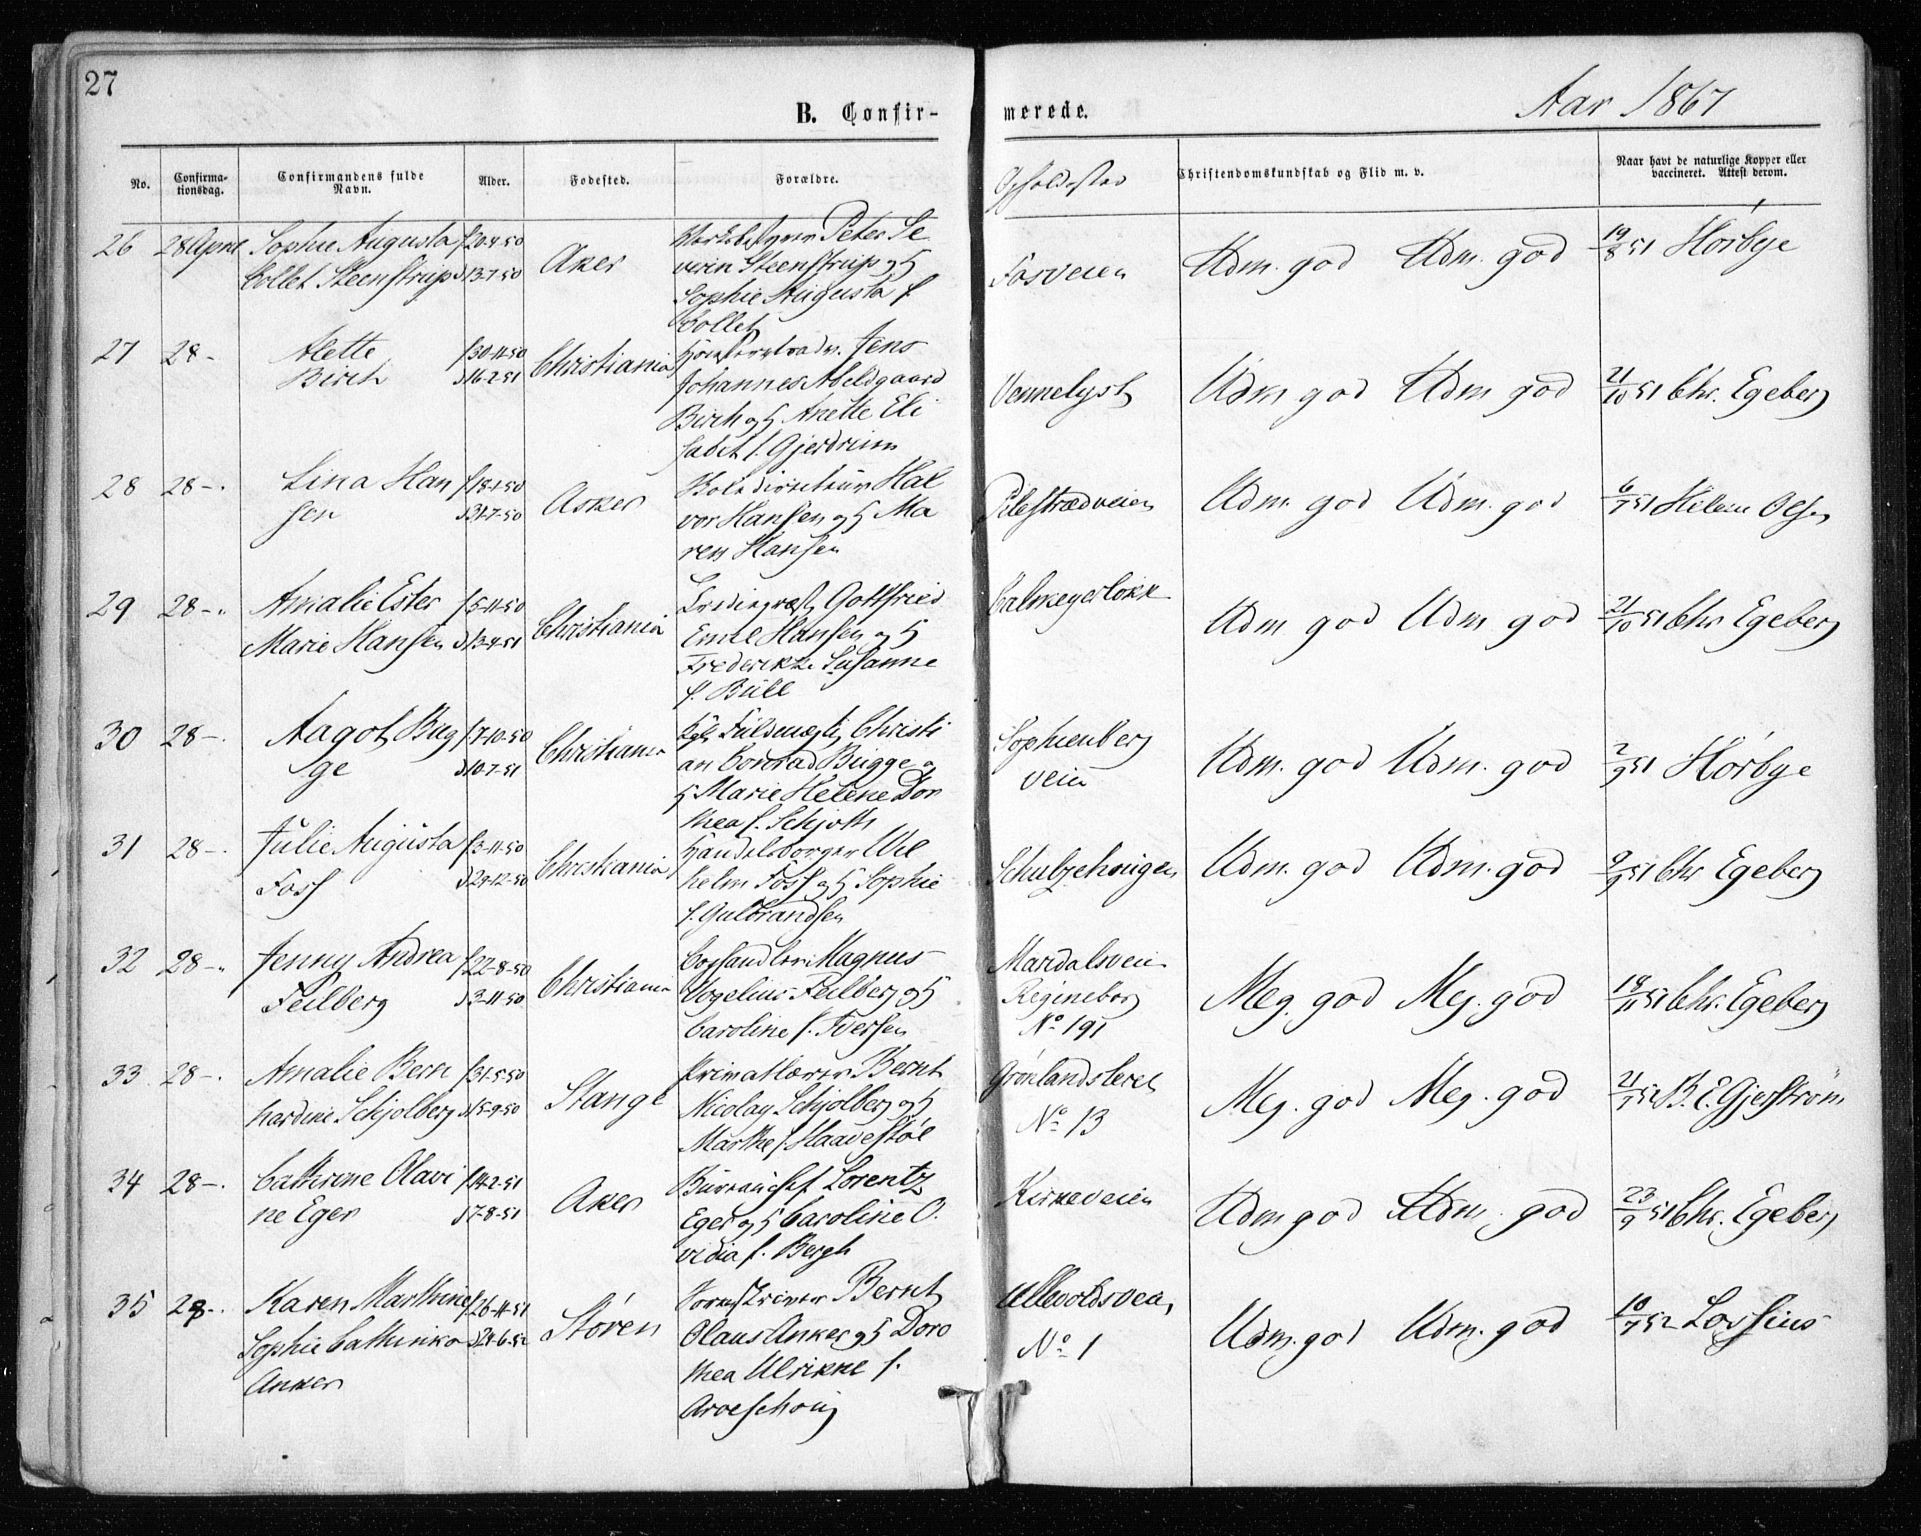 27
B. Confir-
merede.
Aar 1867
No.
Confirma-
tionsdag.
Confirmandens fulde
Navn.
Alder.
Fødested.
Forældre.
Opholdssted
Christendomskundskab og Flid m. v.
Naar havt de naturlige Kopper eller
vaccineret. Attest derom.
26 28 April Sophie Augusta f 20-4-50 Aker Peter Se
Collet Steenstrup d 13-7-50 verin Steenstrup og H
Sophie Augusta f.
Collet
Fosveien Udm. god Udm. god 19/8 51 Hørbye
27 28 - Alette f 30-11-50 Christiania Jens
Birch d 16-2-51 Johannes Abeldgaard
Birch og H Anette Eli
sabet f. Gjerdrum
Vennelyst Udm god Udm god 21/10 51 Chr. Egeberg
28 28 -. Lina Han f 18-1-50 Asker Hal
sen d 31-7-50 vor Hansen og H Ma
ren Hansen
Pilestrædveien Udm. god Udm. god 6/7 51 Olsen
29 28 -. Amalie Ester f 5-11-50 Christiania Gottfried
Marie Hansen d 13-4-51 Emil Hansen og H
Frederikke Susanne
f. Bull
Calmeyerløkk Udm god Udm god 21/10 51 Chr Egeberg
30 28 -. Aagot Bug f 7-10-50 Christiania Fuldmægt Christi
ge d 10-7-51 an Conrad Bugge o
H Marie Helene Dor
thea f. Schjøth
Sophienberg
veien
Udm. god Udm. god 2/9 51 Hørbye
31 28 -. Julie Augusta f 3-11-50 Christiania Handelsborger Wil
Foss d 24-12-50 helm Foss og H Sophie
f. Gulbrandsen
Schultzehougen Udm. god Udm. god 9/9 51 Chr Egeberg
32 28 -. Jenny Andrea f 22-8-50 Christiania Boghandler Magnus
Feilberg d 3-11-50 Vogelius Feilberg og H
Caroline f. Iversen
Maridalsvei
Regineborg
No 191
Meg. god Meg. god 18/11 51 Chr. Egeberg
33 28 -. Amalie Bern f 31-5-50 Stange Privatlærer Bernt
hardine Schjolberg d 15-9-50 Nicolay Schjolberg og H
Marthe f. Haavestøl
Grønlandsleret
No 13
Meg. god Meg. god 21/1 52 B. E. Gjerstrøm
34 28 -. Cathrine Olavi f 14-2-51 Aker Büreauchef Lorentz
ne Eger d 7-8-51 Eger og H Caroline O.
vidia f. Bergh
Kirkeveien Udm god Udm. god 23/9 51 Chr. Egeberg
35 28 -. Karen Marthine f 26-11-51 Støren Bernt
Sophie Cathinka d 24-6-52 Olaus Anker og H Doro
Anker thea Ulrikke f.
Aroeschoug
Ullevoldsveien
No 1
Udm. god Udm. god 10/7 52 Lossius